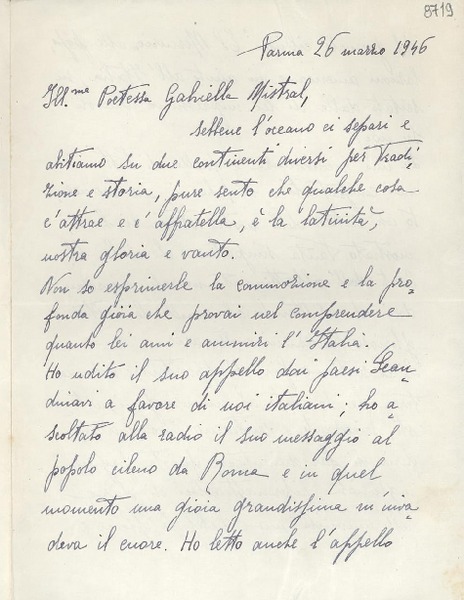 8719
Parma 26 marzo 1946
Ill.me Poetessa Gabriella Mistral,
sebbene l'oceano ci separi e
abitiamo su due continenti diversi per tradi-
zione e storia, pure sento che qualche cosa
c'attrae e c'affratella, è la latinità,
nostra gloria e vanto.
Non so esprimerle la commozione e la pro-
fonda gioia che provai nel comprendere
quanto lei ami e ammiri l'Italia.
Ho udito il suo appello dai paesi Scan-
dinavi a favore di noi italiani; ho a-
scoltato alla radio il suo messaggio al
popolo cileno da Roma e in quel
momento una gioia grandissima m'inva-
deva il cuore. Ho letto anche l'appello